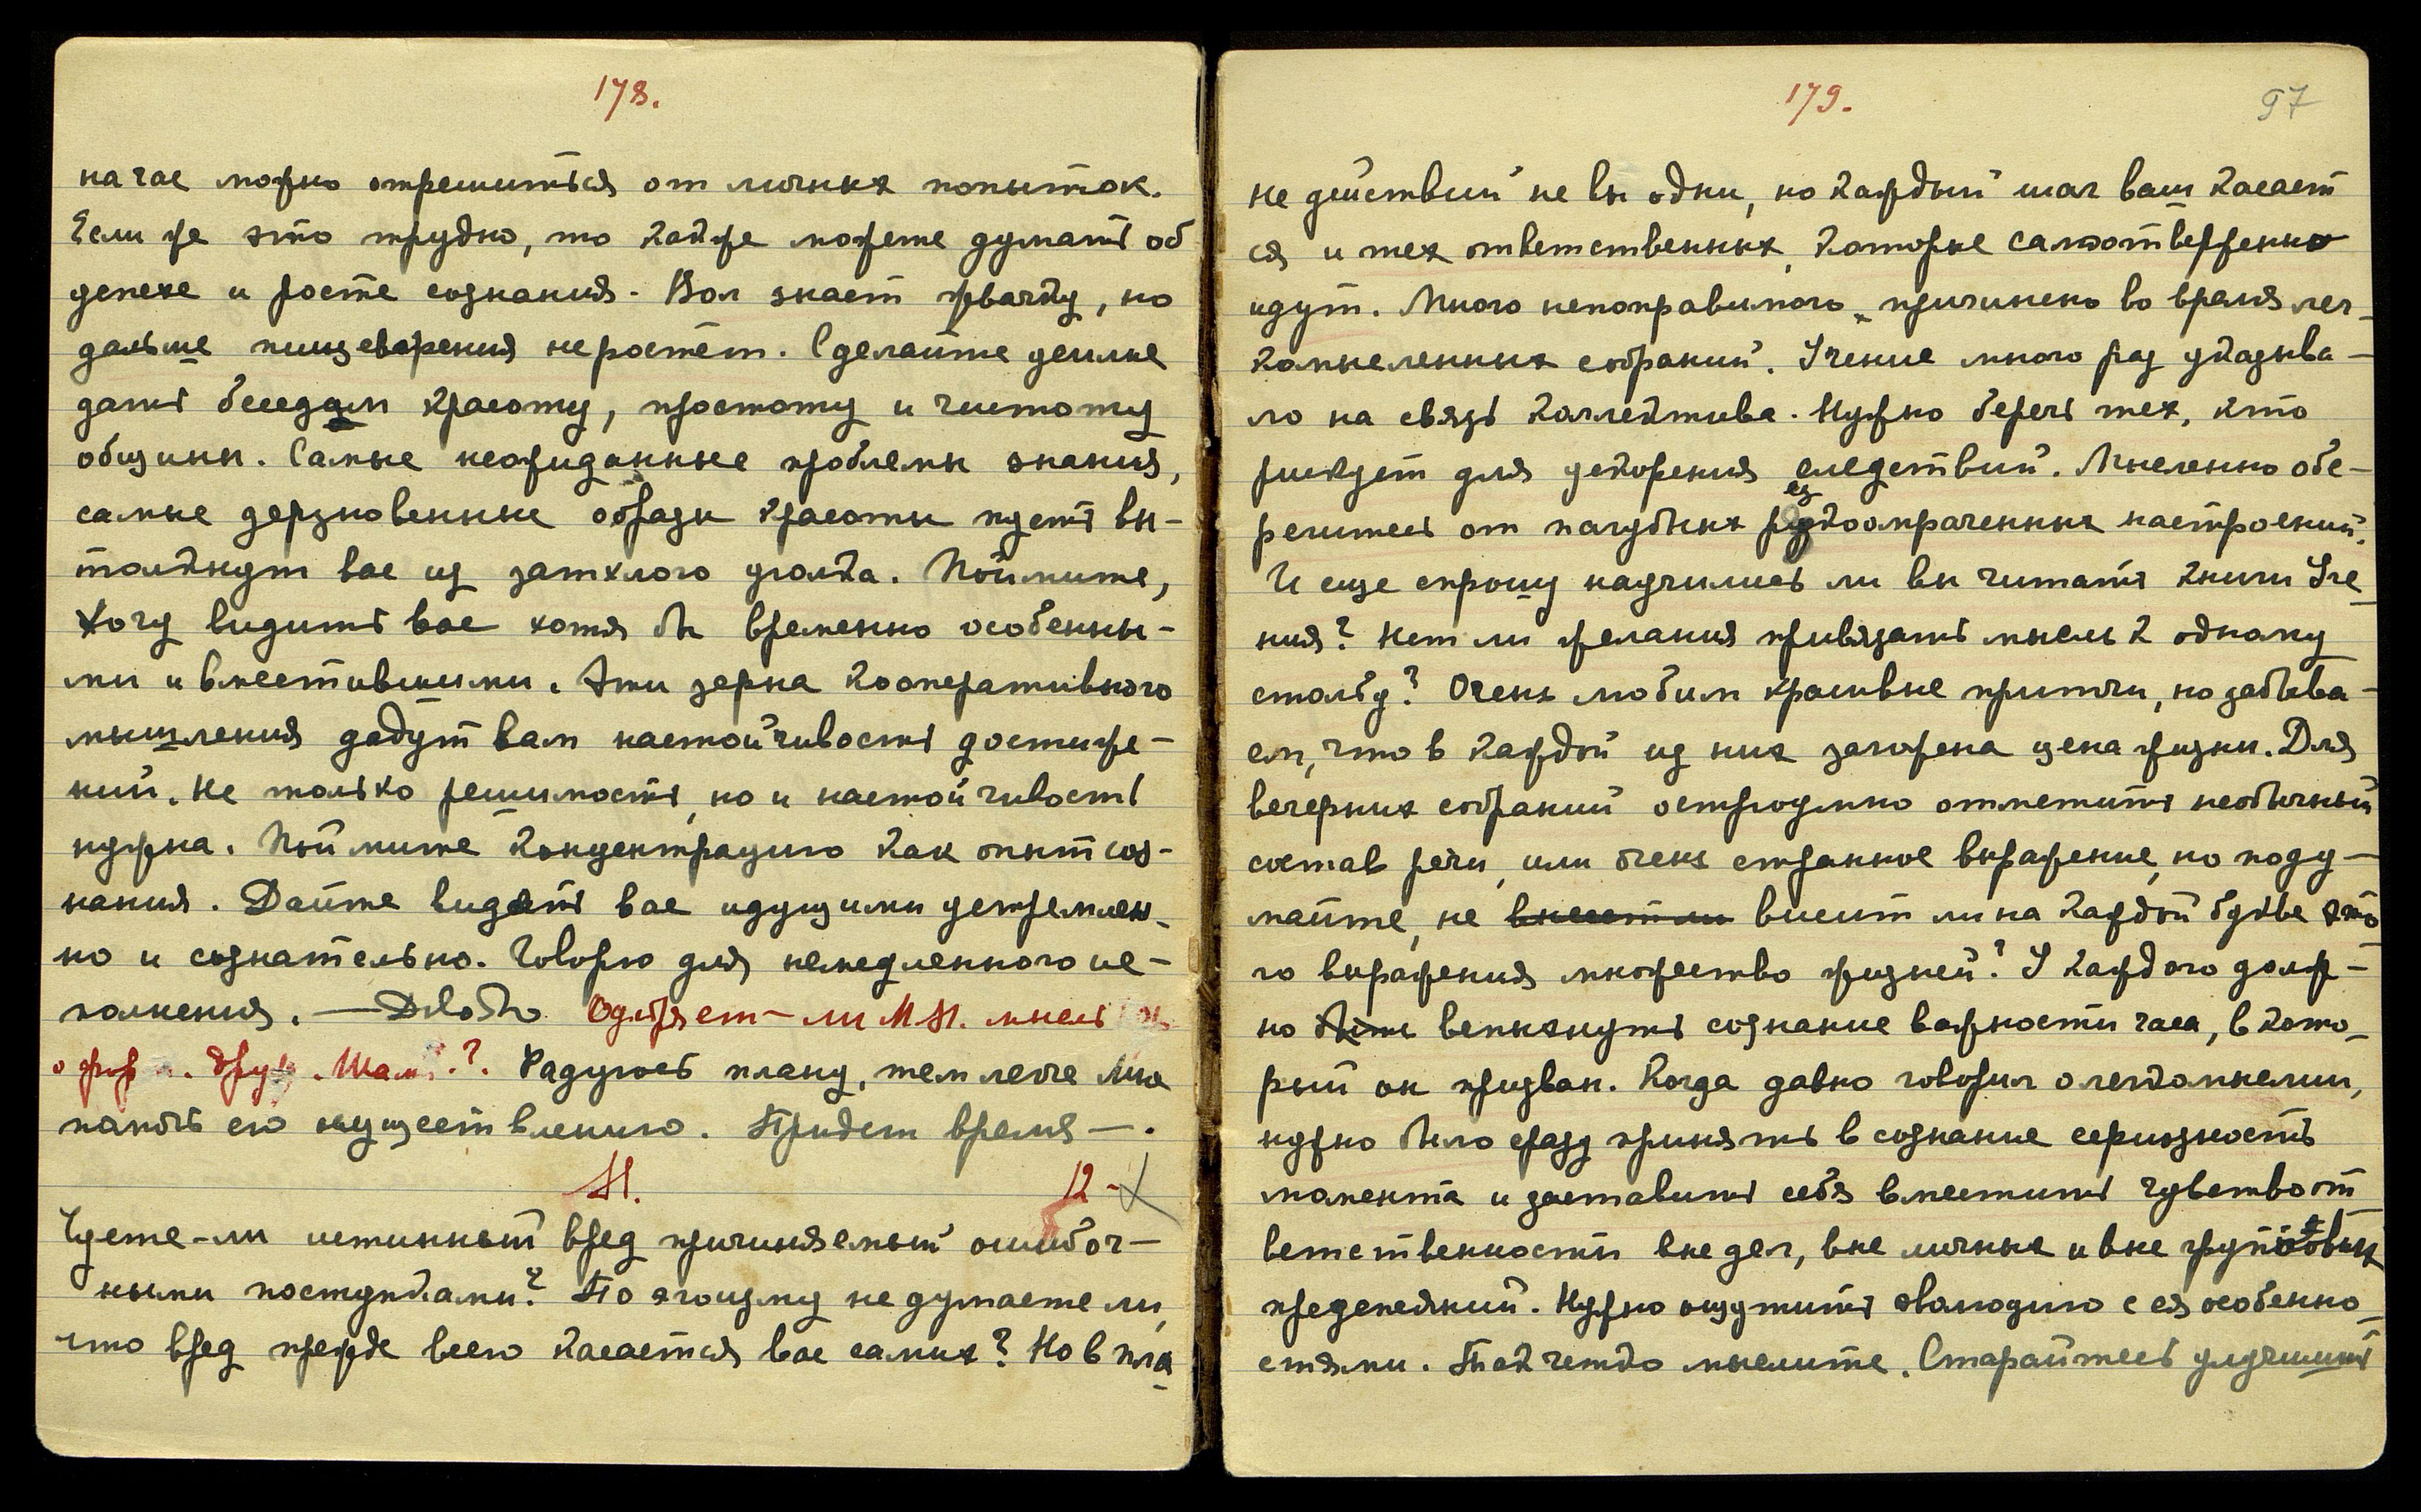 178.
на час можно отрешиться от личных попыток.
Если же это трудно, то какже можете думать об
успехе и росте сознания. Вол знает жвачку, но
дальше пищеварения не ростёт. Сделайте усилие
дать беседам красоту, простоту и чистоту
общины. Самые неожиданные проблемы знания,
самые дерзновенные образы красоты пусть вы-
толкнут вас из затхлого уголка. Поймите,
хочу видить вас хотя бы временно особенны-
ми и вместившими. Эти зерна кооперативного
мышления дадут вам настойчивость достиже-
ний. Не только решимость, но и настойчивость
нужна. Поймите концентрацию как опыт соз-
нания. Дайте видеть вас идущими устремлен-
но и сознательно. Говорю для немедленного ис-
полнения. — Довольно. Одобряет-ли М.М. мысль
о друж. Шам.? Радуюсь плану, тем легче Мне
помочь его осуществлению. Придет время —.
М.
12 -
Чуете-ли истинный вред причиняемый ошибоч-
ными поступками? По эгоизму не думаете ли,
что вред прежде всего касается вас самих? Но в пла
179.
97
не действий не вы одни, но каждый шаг ваш касает
ся и тех ответственных, которые самоотверженно
идут. Много непоправимого причинено во время лег-
комысленных собраний. Учение много раз указыва-
ло на связь коллектива. Нужно беречь тех, кто
рискует для ускорения следствий. Мысленно обе-
регитесь от пагубных резкоомраченных настроений.
И еще спрошу научились ли вы читать книги Уче
ния? Нет ли желания привязать мысль к одному
столбу? Очень любим красивые притчи, но забыва-
ем, что в каждой из них затворена цена жизни. Для
вечерних собраний остроумно отметить необычный
состав речи, или очень странное выражение, но поду-
майте, не висит ли на каждой букве это
го выражения множество жизней? У каждого долж-
но быть вспыхнуть сознание важности часа, в кото-
рый он призван. Когда давно говорил о легкомыслии,
нужно было сразу принять в сознание серьезность
момента и заставить себя вместить чувство от
ветственности вне дел, вне личных и вне групповых
преденоений. Нужно ощутить эволюцию с ея особенно-
стями. Так четко мыслите. Старайтесь улучшить